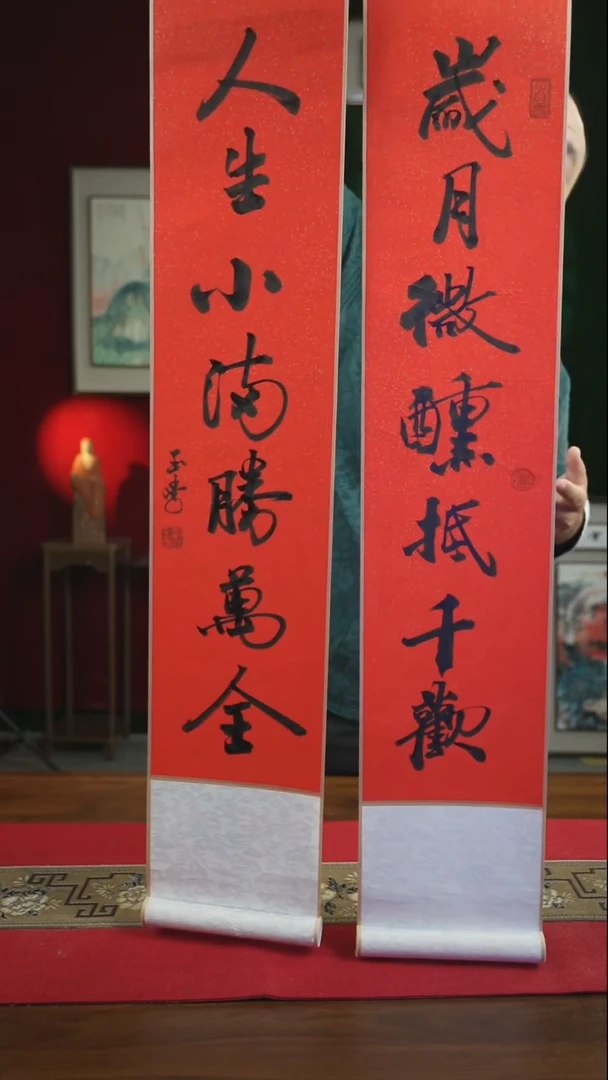 歲月微醺抵千歡
人生小滿勝萬全